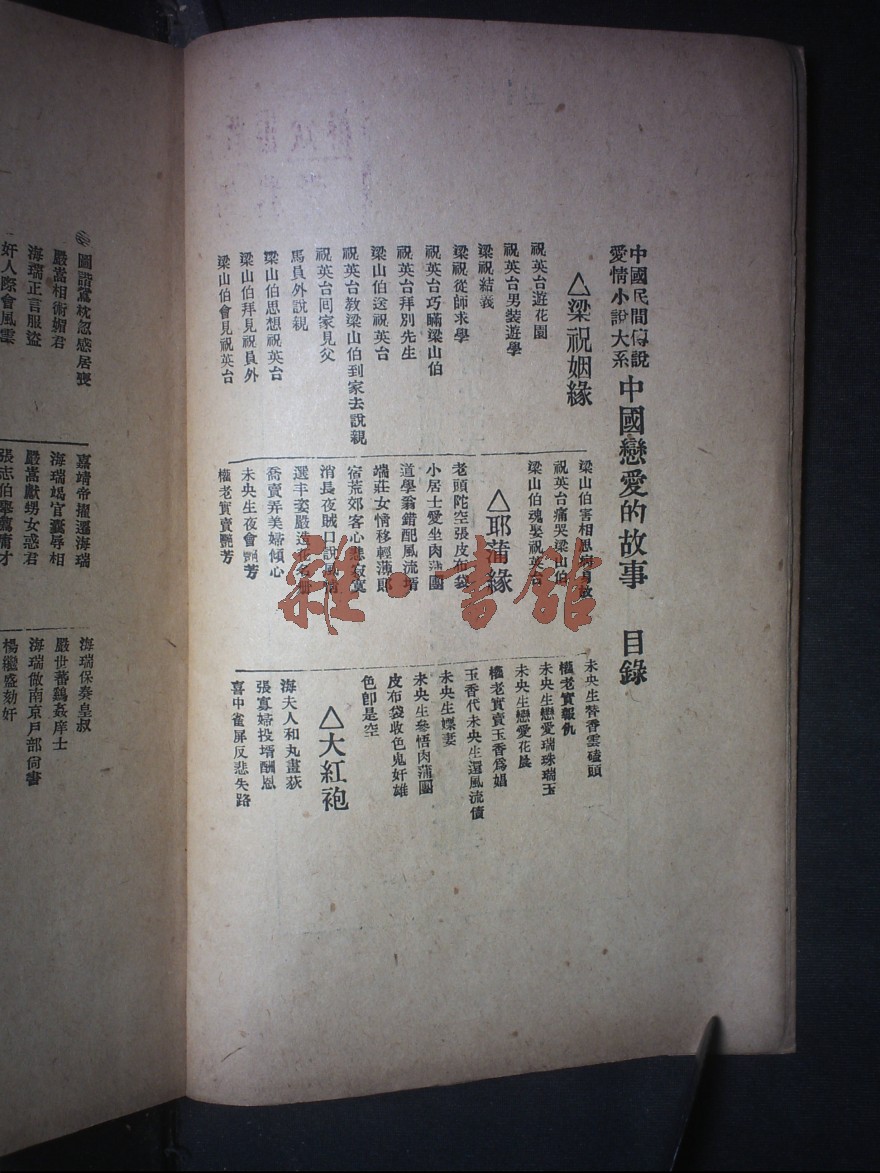 中國民間傳說
愛情小說大系
中國戀愛的故事 目錄
△梁祝姻緣
祝英台遊花園
祝英台男裝遊學
梁祝結義
梁祝從師求學
祝英台巧瞞梁山伯
祝英台拜別先生
梁山伯送祝英台
祝英台教梁山伯到家去說親
祝英台回家見父
馬員外說親
梁山伯思想祝英台
梁山伯拜見祝員外
梁山伯會見祝英台
梁山伯害相思病身故
祝英台痛哭梁山伯
梁山伯魂娶祝英台
△耶蒲緣
老頭陀空張皮布袋
小居士愛坐肉蒲團
道學翁錯配風流壻
端莊女情移輕薄郎
宿荒郊客心悲寂寞
消長夜賊口說風情
選丰姿嚴造花名冊
喬賣弄美婦傾心
未央生夜會艷芳
權老實賣艷芳
未央生替香雲磕頭
權老實報仇
未央生戀愛瑞珠瑞玉
未央生戀愛花晨
權老實賣玉香爲娼
玉香代未央生還風流債
未央生嫖妻
未央生參悟肉蒲團
皮布袋收色鬼奸雄
色卽是空
△大紅袍
海夫人和丸畫荻
張寡婦投壻酬恩
喜中雀屏反悲失路
圖諧鴛枕忽感居喪
嚴嵩相術媚君
海瑞正言服盜
奸人際會風雲
嘉靖帝擢遷海瑞
海瑞竭官囊辱相
嚴嵩獻甥女惑君
張志伯舉薦庸才
海瑞保奏皇叔
嚴世蕃鷄姦庠士
海瑞做南京戶部尙書
楊繼盛劾奸
雜·書館